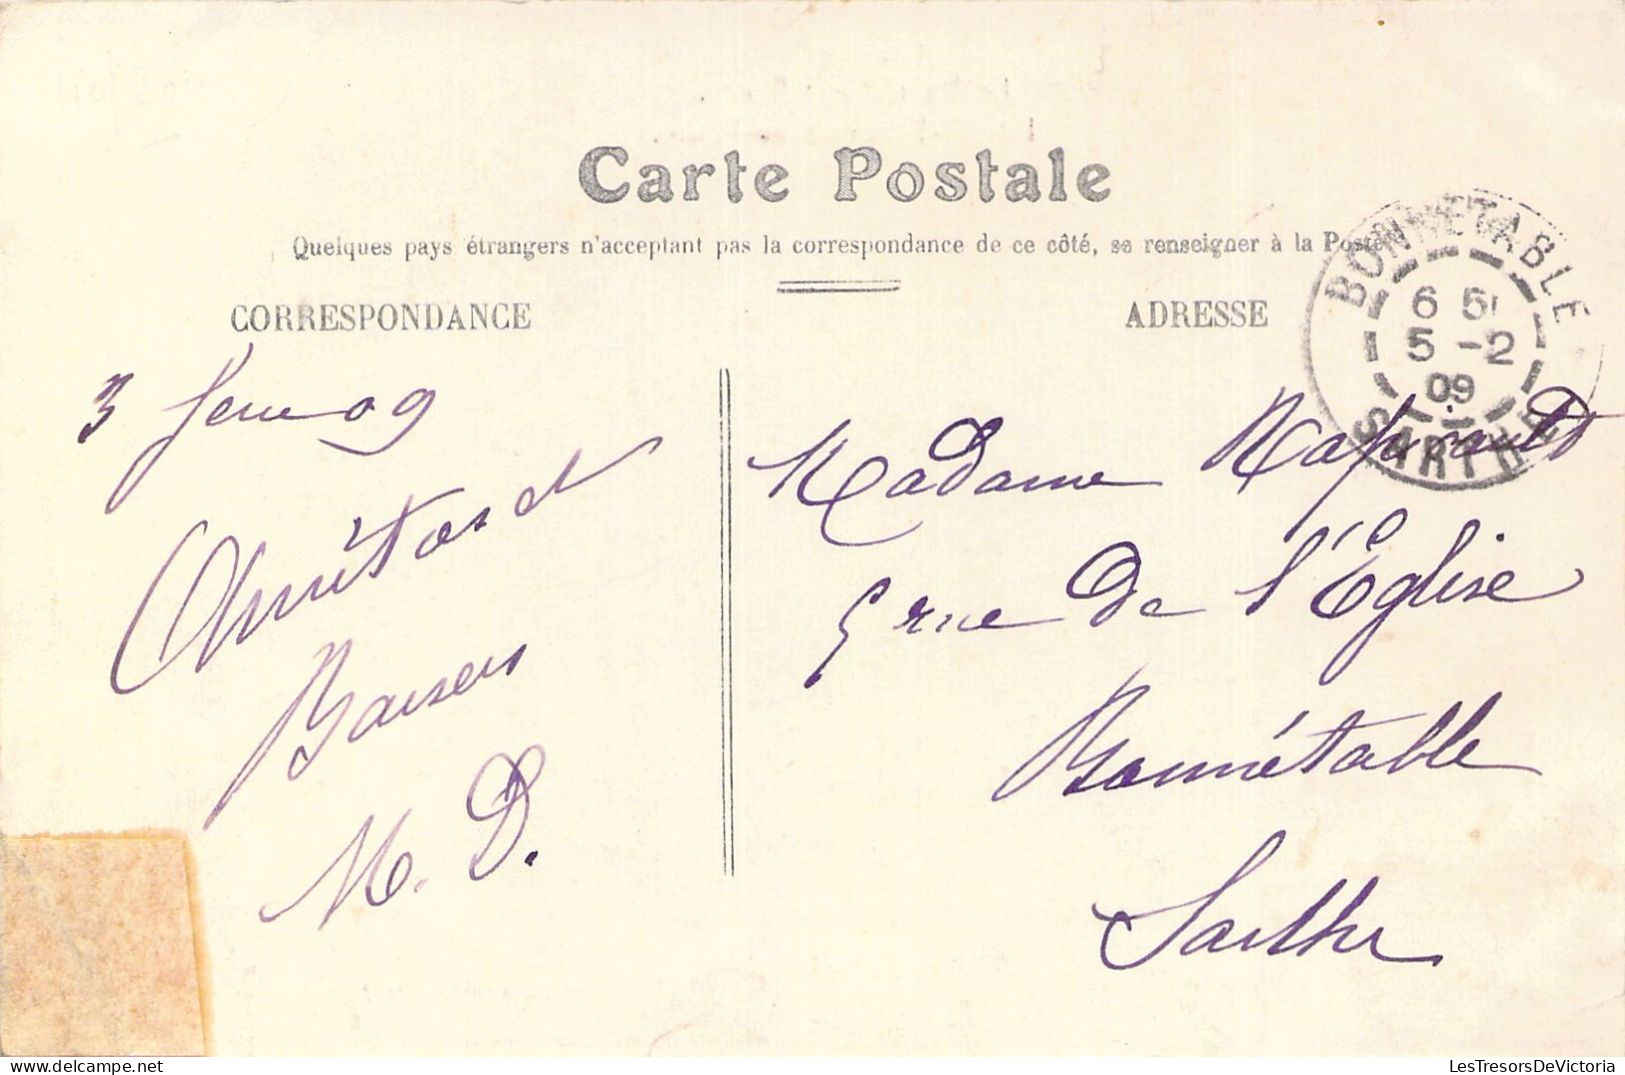 Carte Postale
Quelques pays étrangers n'acceptant pas la correspondance de ce côté, se renseigner à la Poste
CORRESPONDANCE
ADRESSE
BONNÉTABLE
6 51
5 -2
09
SARTHE
3 09
Amitas et
Baisers
M. D.
Madame
5 rue de l'Église
Bonnétable
Sarthe
LesTresorsDeVictoria